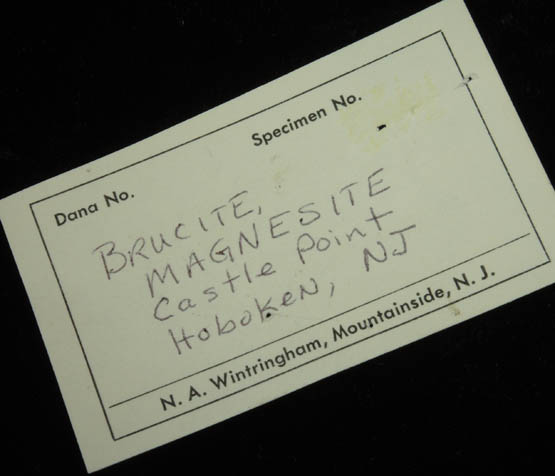 Specimen No.
Dana No.
BRUCITE,
MAGNESITE
Castle Point
Hoboken, NJ
N. A. Wintringham, Mountainside, N. J.